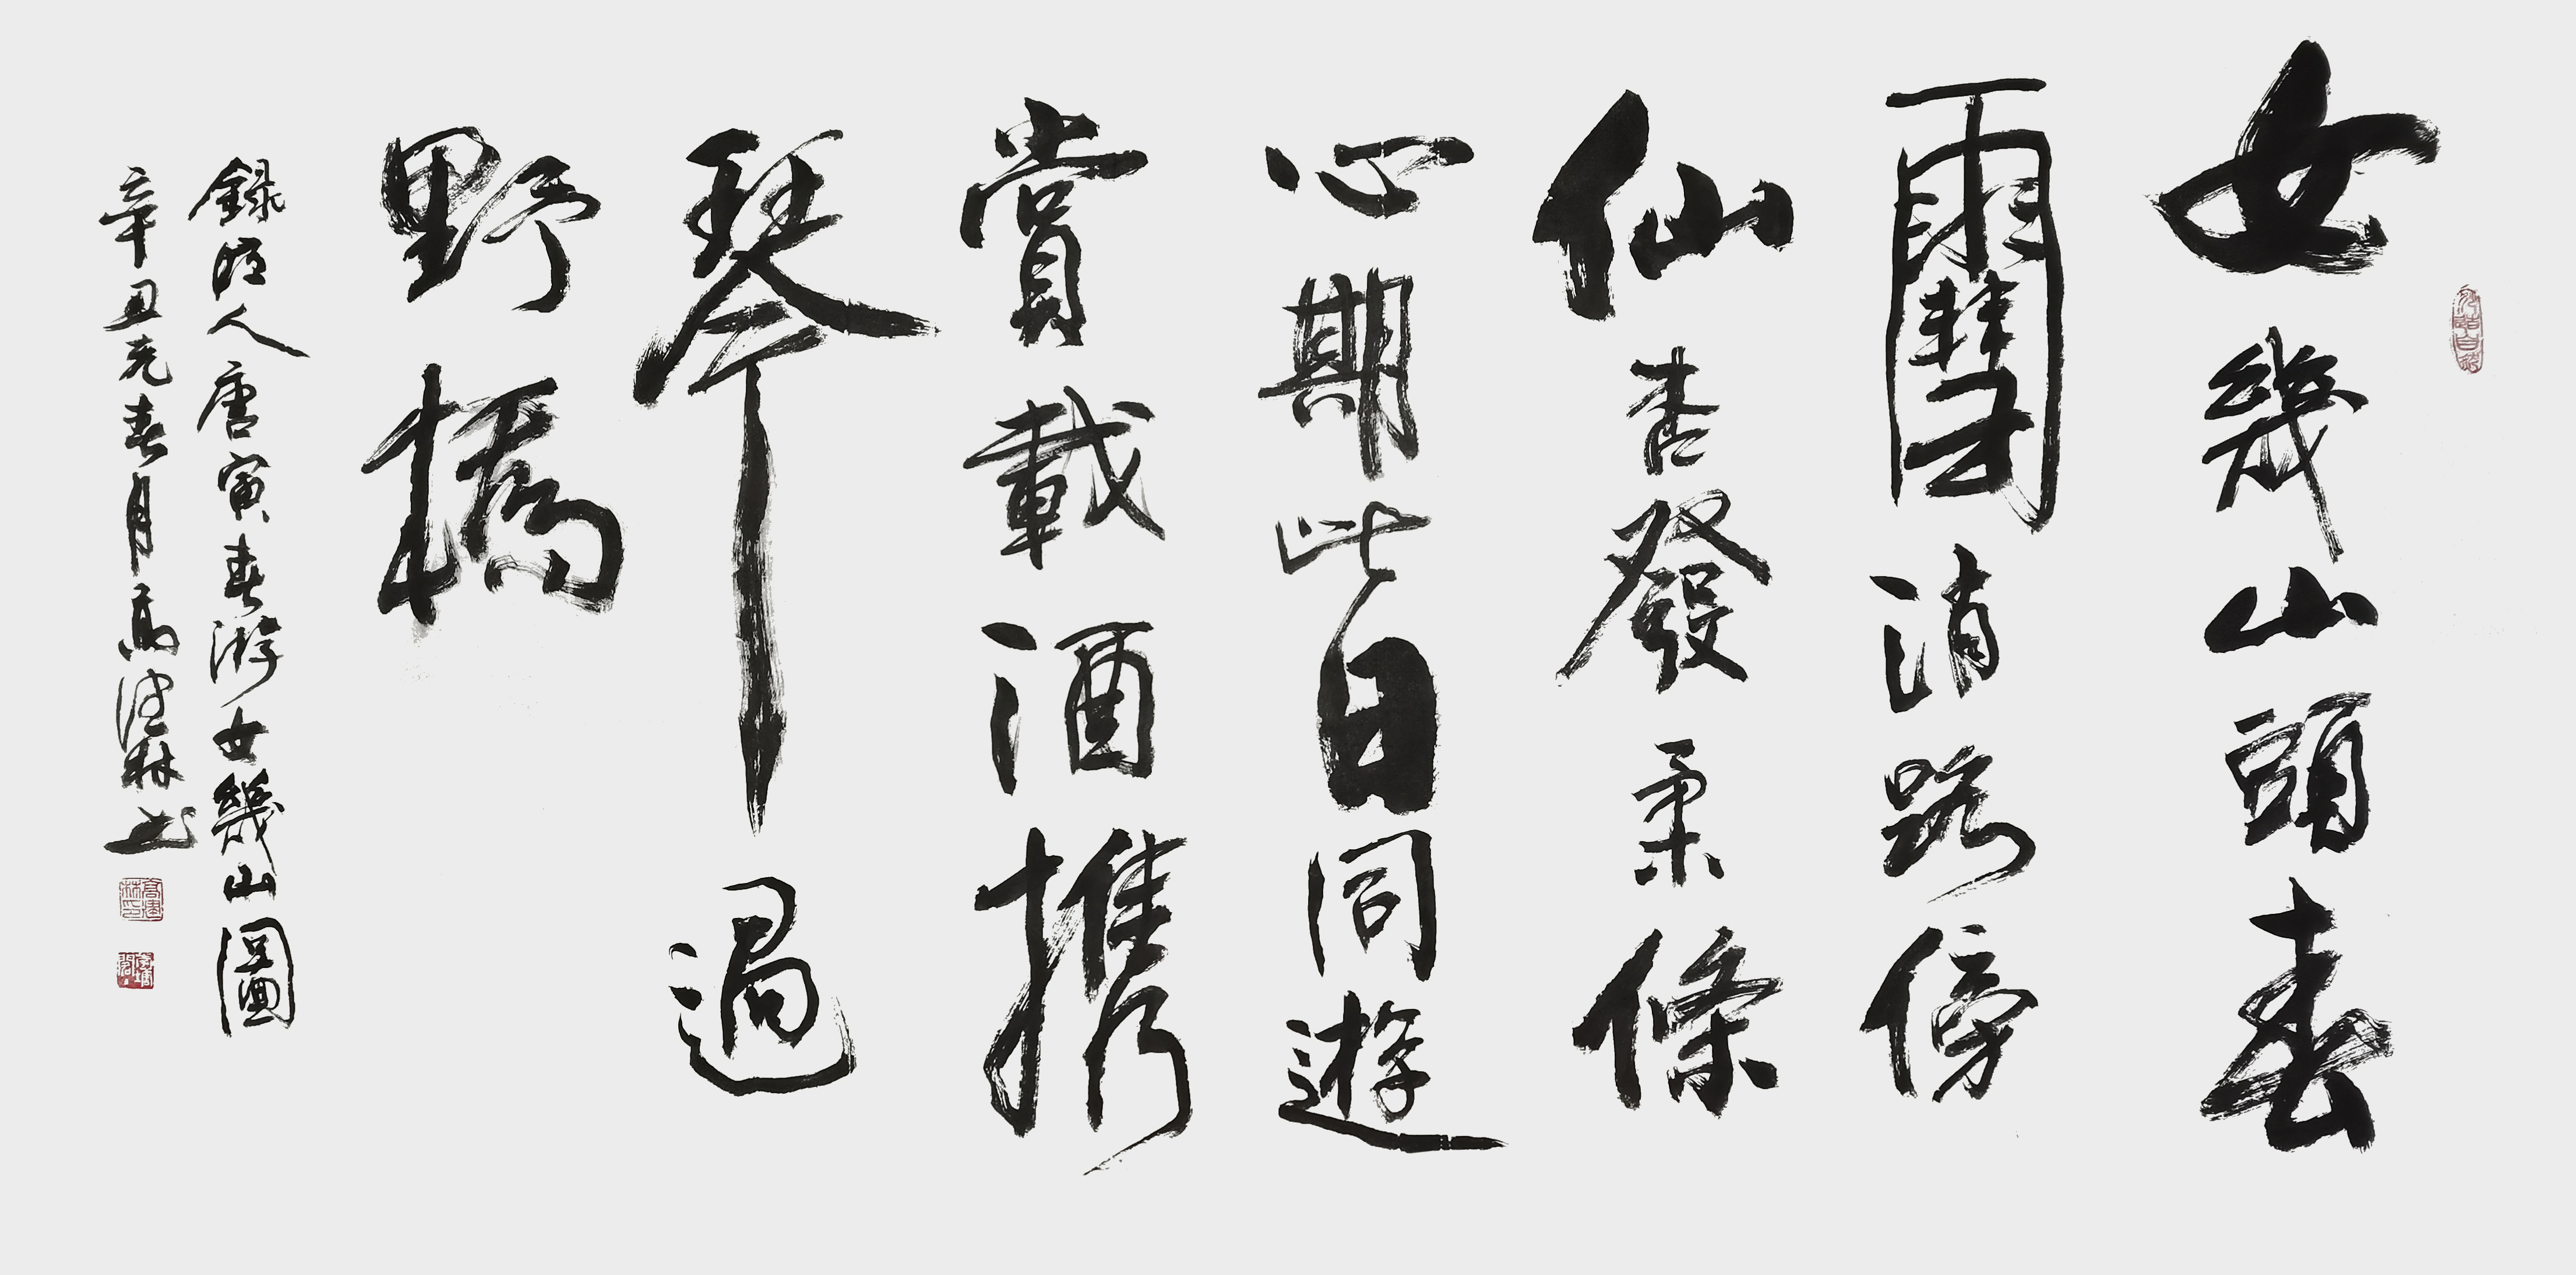 女幾山頭春
䨮消路傍
仙杏發柔條
心期此日同遊
賞載酒携
琴過
野橋
錄明人唐寅春游女幾山圖
辛丑元春月高建林书